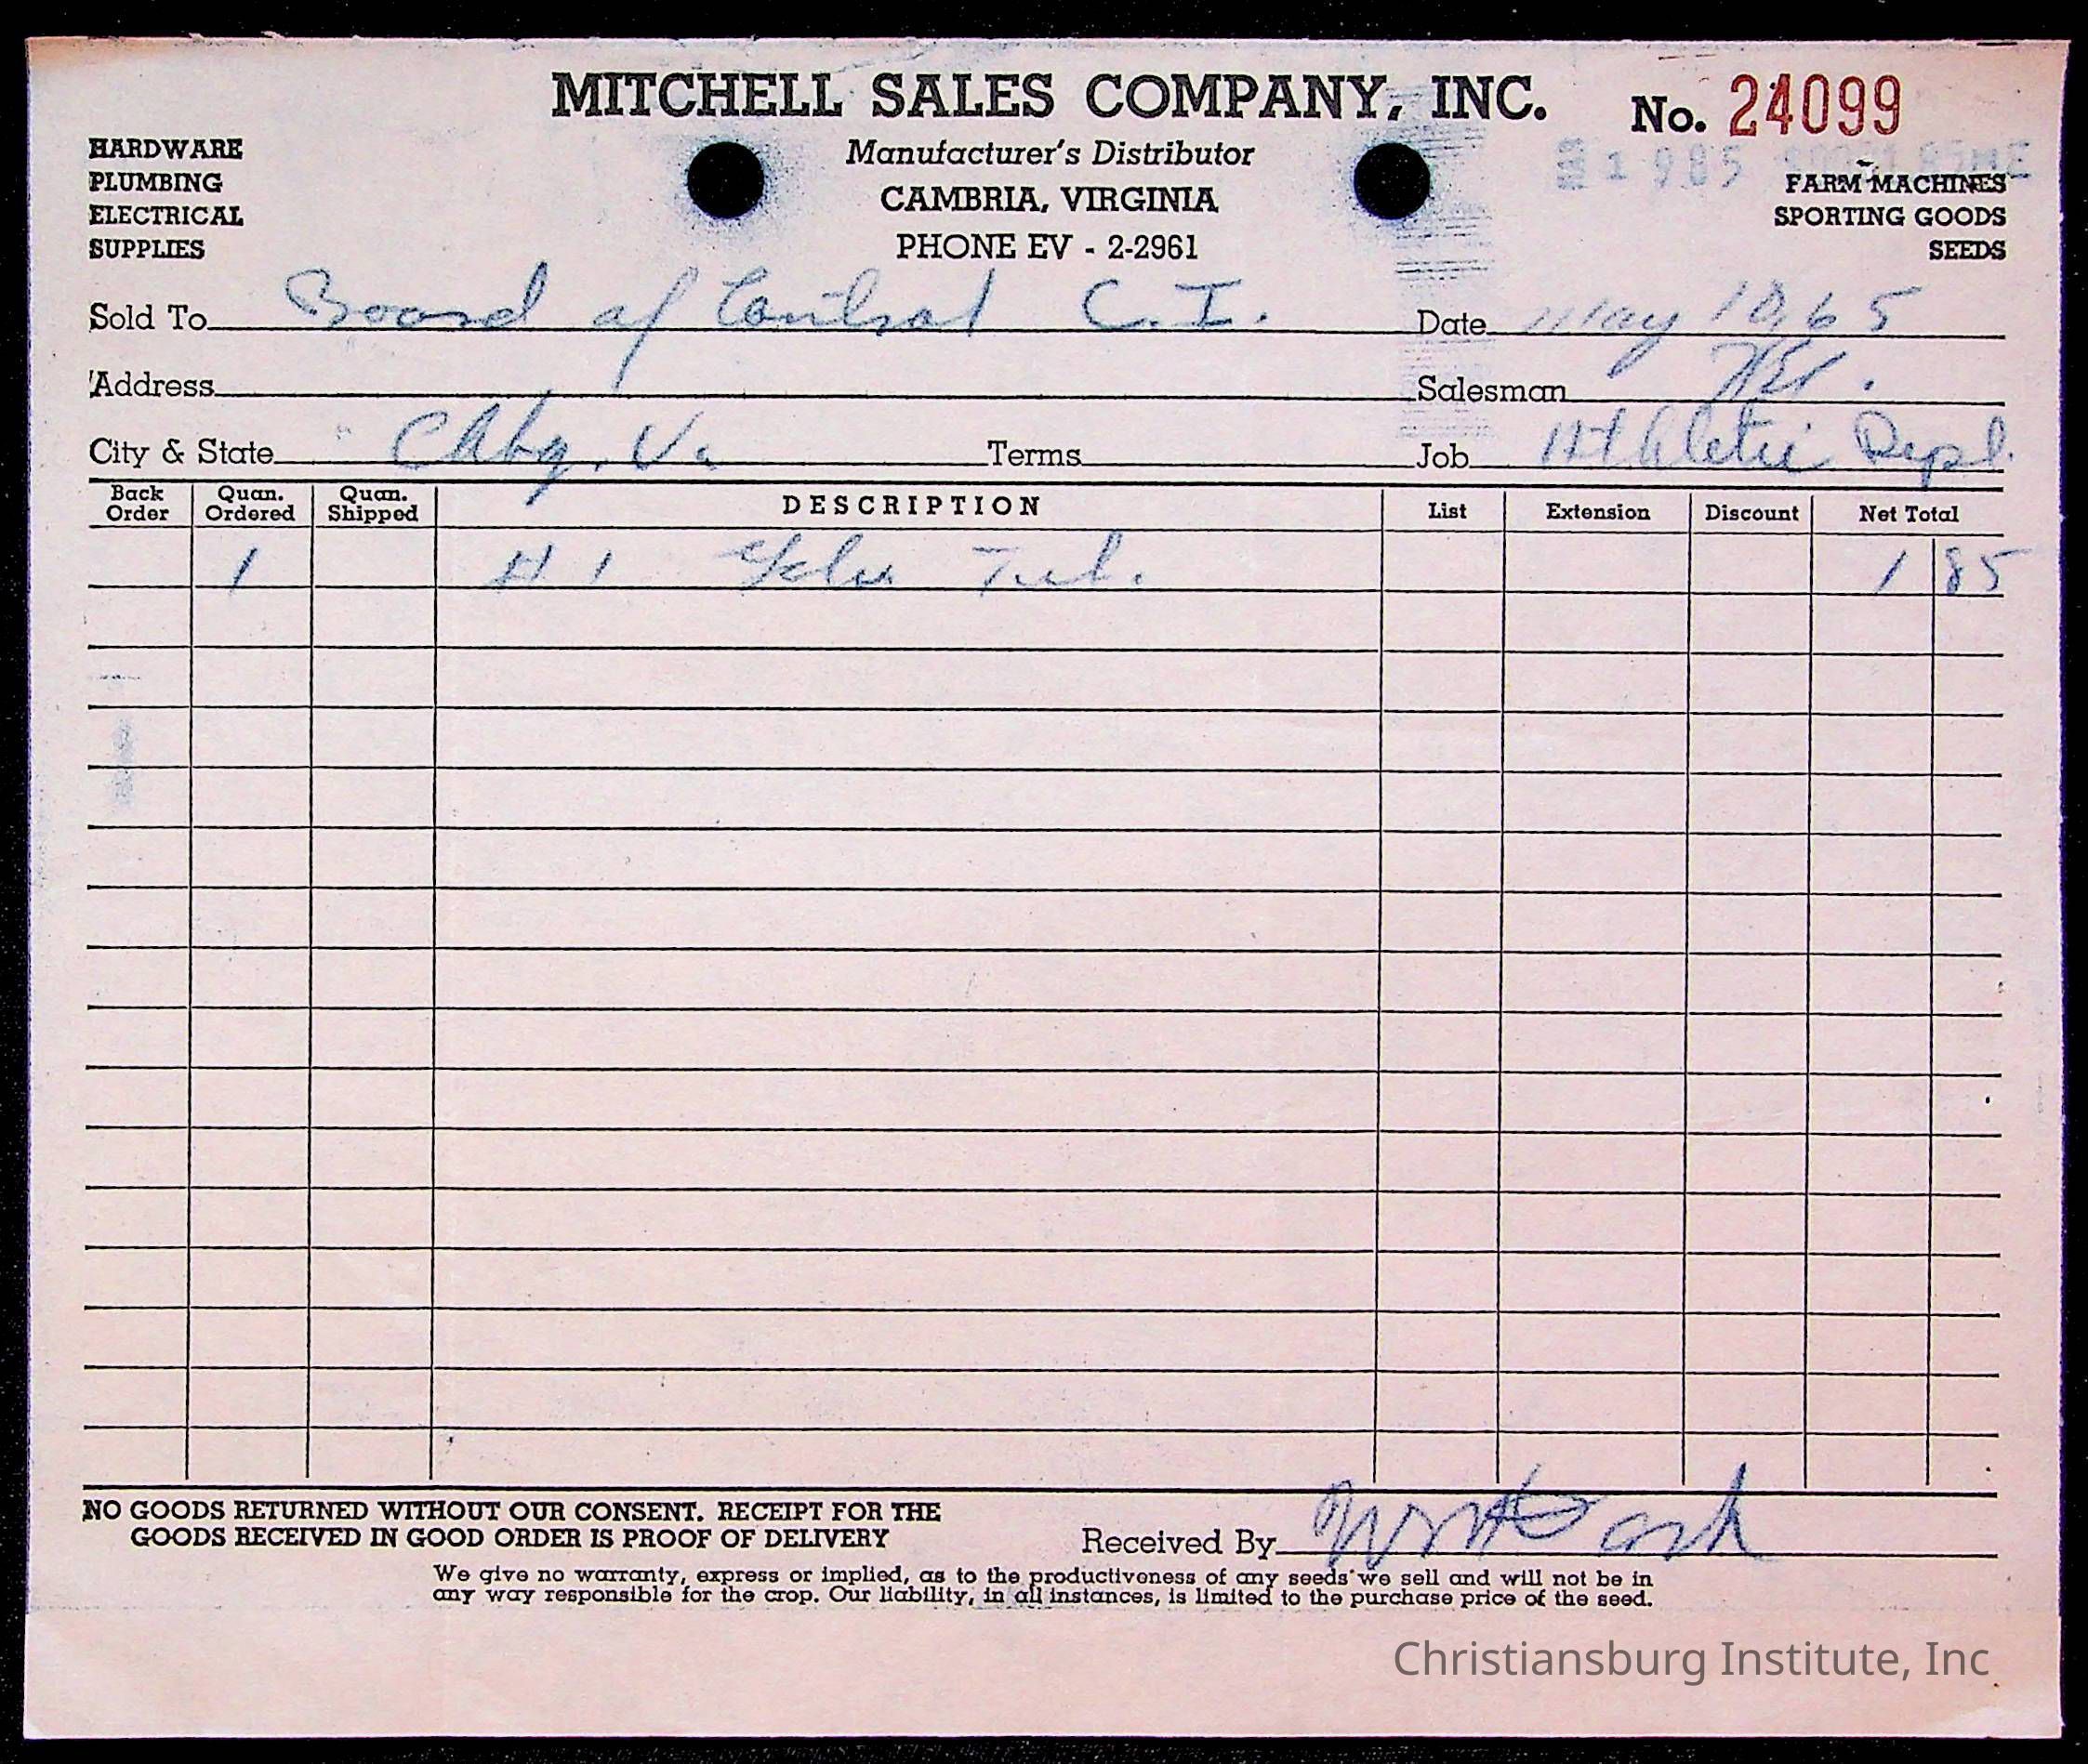 MITCHELL SALES COMPANY, INC.
No. 24099
HARDWARE
PLUMBING
ELECTRICAL
SUPPLIES
Manufacturer's Distributor
CAMBRIA, VIRGINIA
PHONE EV - 2-2961
FARM MACHINES
SPORTING GOODS
SEEDS
Sold To Board of Control C. I. Date May 10, 65
Address Salesman
City & State Chbg, Va Terms Job Athletic Dept.
Back Order Quan. Ordered Quan. Shipped DESCRIPTION List Extension Discount Net Total
1 # 1 1 85
NO GOODS RETURNED WITHOUT OUR CONSENT. RECEIPT FOR THE
GOODS RECEIVED IN GOOD ORDER IS PROOF OF DELIVERY
Received By
We give no warranty, express or implied, as to the productiveness of any seeds we sell and will not be in
any way responsible for the crop. Our liability, in all instances, is limited to the purchase price of the seed.
Christiansburg Institute, Inc